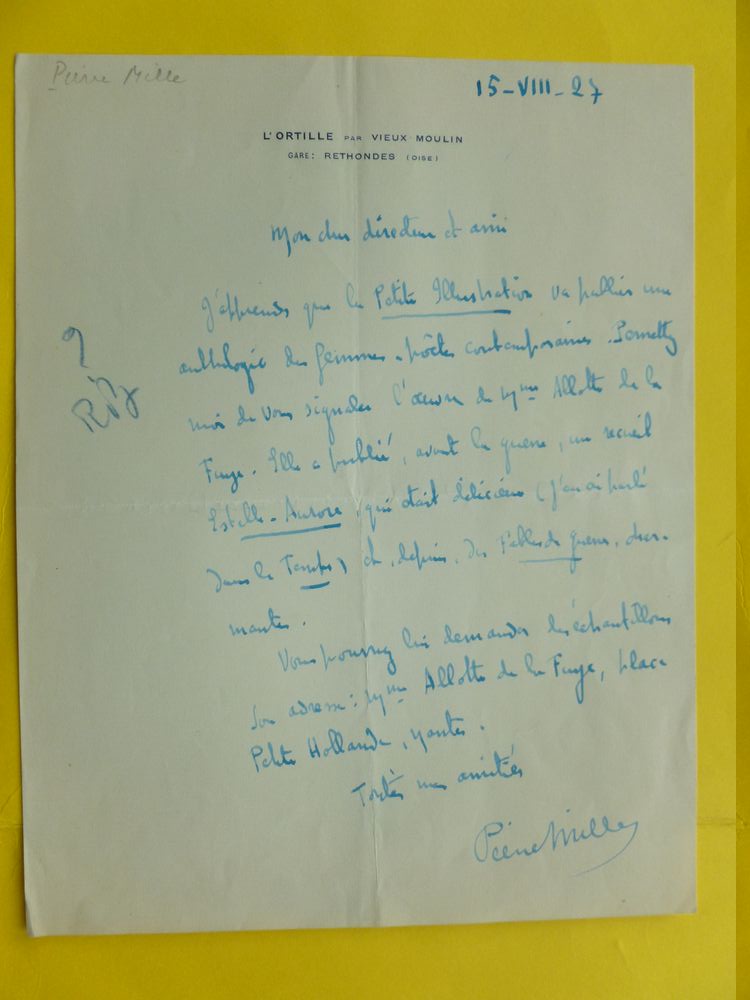 Pierre Mille
15-VIII-27
L'ORTILLE PAR VIEUX MOULIN
GARE: RETHONDES (OISE)
Mon cher directeur et ami
J'apprends que la Petite Illustration va publier une
anthologie des femmes-poètes contemporaines. Permettez
moi de vous signaler l'œuvre de Mme Allotte de la
Fuye. Elle a publié, avant la guerre, un recueil
Estelle-Aurore, qui était délicieux (j'en ai parlé
dans le Temps) et, depuis, des Fables de guerre, char-
mantes.
Vous pourrez lui demander des échantillons
Son adresse: Mme Allotte de la Fuye, place
Petite Hollande, Nantes.
Toutes mes amitiés
Pierre Mille
?